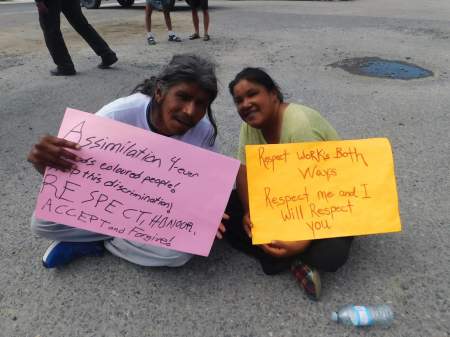 Assimilation 4 ever
coloured people!
this discrimination!
RESPECT, HONOUR,
ACCEPT and Forgive!
Repect Works Both
Ways
Respect me and I
Will Respect
you